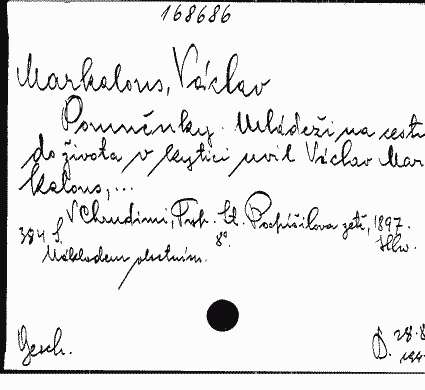 168686
Markalous, Václav
Pomněnky. Mládeži na cestu
do života v kytici uvil Václav Mar
kalous, ...
V Chrudimi, Frt. St. Pospíšilova zeť, 1897.
384 S. 8°.
Nákladem vlastním.
Gesch. 28.8